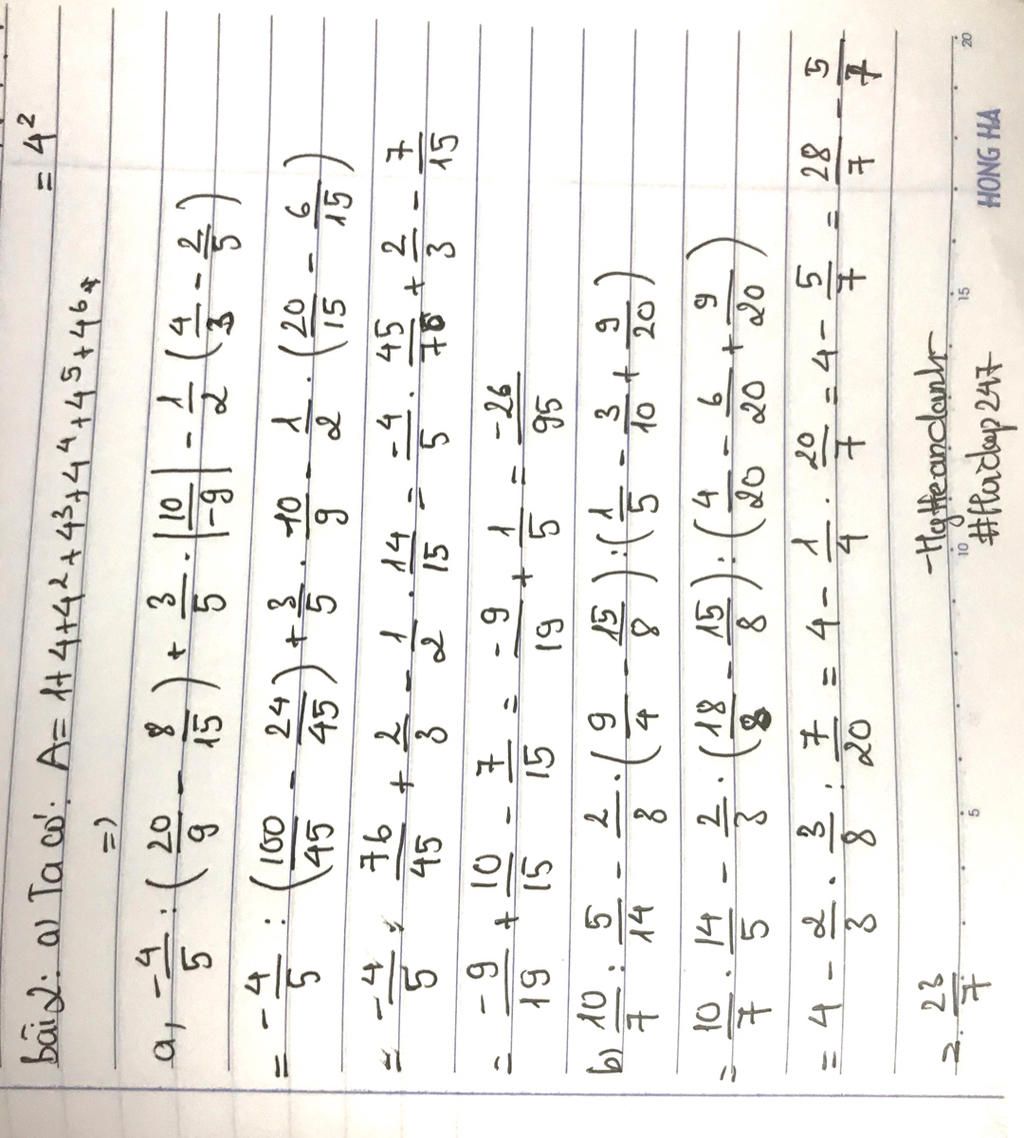 bài 2: a) Ta có: A = 1+4+4²+4³+4⁴+4⁵+4⁶+ = 4²
=)
a, -4/5 : (20/9 - 8/15) + 3/5 . |10/-9| - 1/2 (4/3 - 2/5)
= -4/5 : (100/45 - 24/45) + 3/5 . 10/9 - 1/2 . (20/15 - 6/15)
= -4/5 : 76/45 + 2/3 - 1/2 . 14/15 = -4/5 . 45/76 + 2/3 - 7/15
= -9/19 + 10/15 - 7/15 = -9/19 + 1/5 = -26/95
b) 10/7 : 5/14 - 2/3 . (9/4 - 15/8) : (1/5 - 3/10 + 9/20)
= 10/7 . 14/5 - 2/3 . (18/8 - 15/8) : (4/20 - 6/20 + 9/20)
= 4 - 2/3 . 3/8 : 7/20 = 4 - 1/4 . 20/7 = 4 - 5/7 = 28/7 - 5/7
= 23/7
5 10 15 20
HONG HA